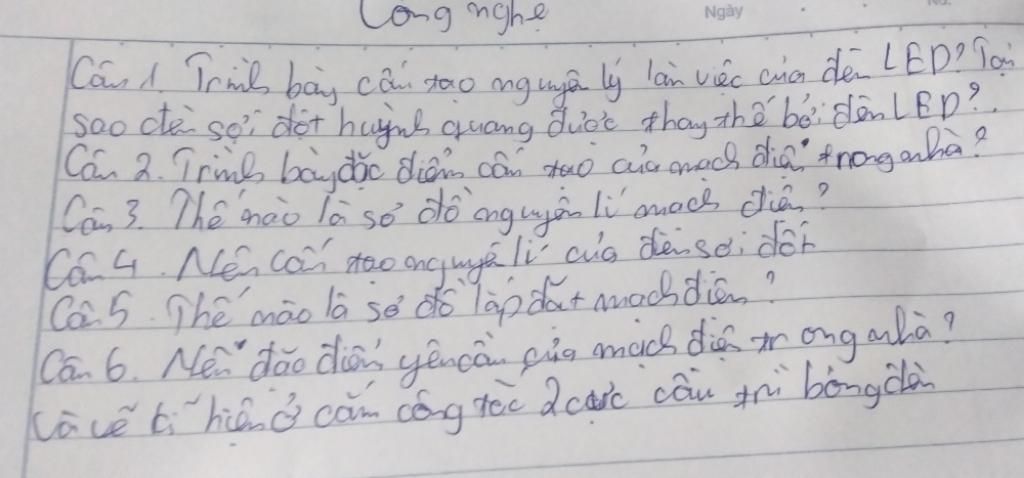 Công nghệ
Ngày
Câu 1. Trình bày cấu tạo nguyên lý làm việc của đèn LED? Tại
sao đèn sợi đốt huỳnh quang được thay thế bởi đèn LED?
Câu 2. Trình bày đặc điểm cấu tạo của mạch điện trong nhà?
Câu 3. Thế nào là sơ đồ nguyên lí mạch điện?
Câu 4. Nên cấu tạo nguyên lí của đèn sợi đốt
Câu 5. Thế nào là sơ đồ lắp đặt mạch điện?
Câu 6. Nên đặc điểm yêu cầu của mạch điện trong nhà?
Và vẽ kí hiệu ổ cắm công tắc 2 cực cầu trì bóng đèn